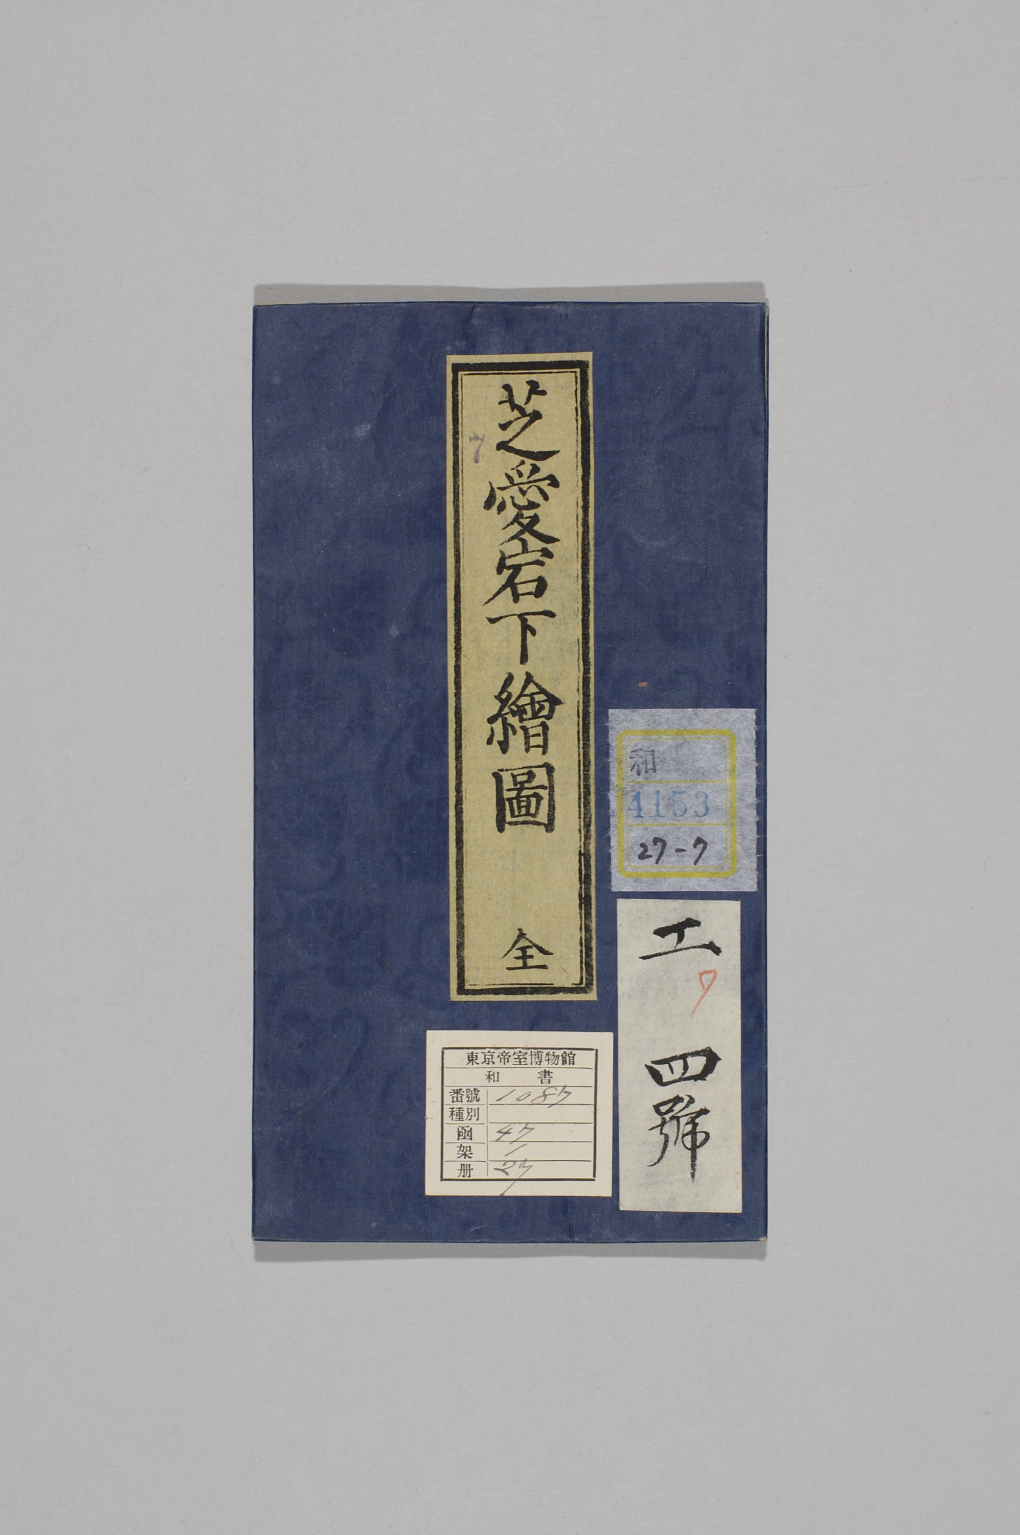 芝愛宕下繪圖 全
7
和
4153
27-7
エ
7
四號
東京帝室博物館
和書
番號 1087
種別
凾 47
架 1
册 27